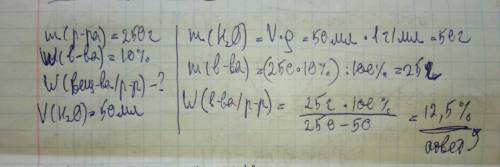 m(р-ра)=250г
W(в-ва)=10%
W(вещ-ва/р-р)-?
V(H₂O)=50мл
m(H₂O)=V·g=50мл·1г/мл=50г
m(в-ва)=(250·10%):100%=25г
W(в-ва/р-р)=25г·100%/250-50=12,5%
ответ